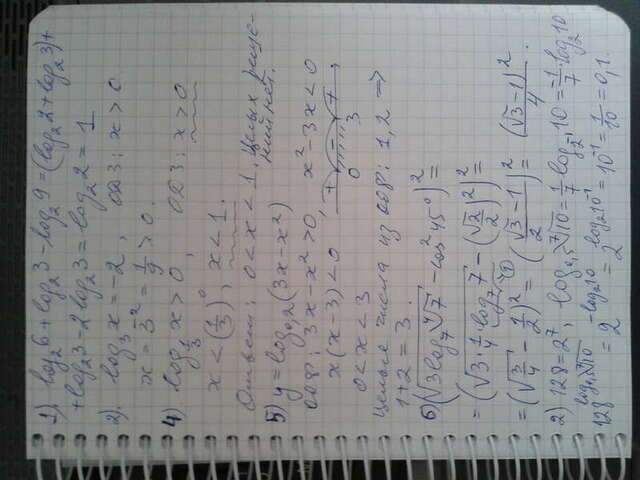 1) log₂6 + log₂3 - log₂9 = (log₂2 + log₂3) +
+ log₂3 - 2log₂3 = log₂2 = 1
2). log₃x = -2, ОДЗ: x > 0
x = 3⁻² = 1/9 > 0.
4) log_{1/3} x > 0, ОДЗ: x > 0
x < (1/3)⁰, x < 1.
Ответ: 0 < x < 1. Целых реше-
ний нет.
5) y = log₀,₂(3x - x²)
ООФ: 3x - x² > 0, x² - 3x < 0
x(x - 3) < 0 + - + 0 3
0 < x < 3
Целые числа из ООФ: 1, 2 ⇒
1 + 2 = 3.
6) (√(3log₇ ⁴√7) - cos²45°)² =
= (√(3·1/4·log₇7) - (√2/2)²)² =
= (√3/√4 - 1/2)² = ((√3 - 1)/2)² = (√3 - 1)²/4
2) 128 = 2⁷, log₄ ⁷√10 = 1/7 log 10 = -1/7·log₂10
128 = 2 = 2 = 10⁻¹ = 1/10 = 0,1.